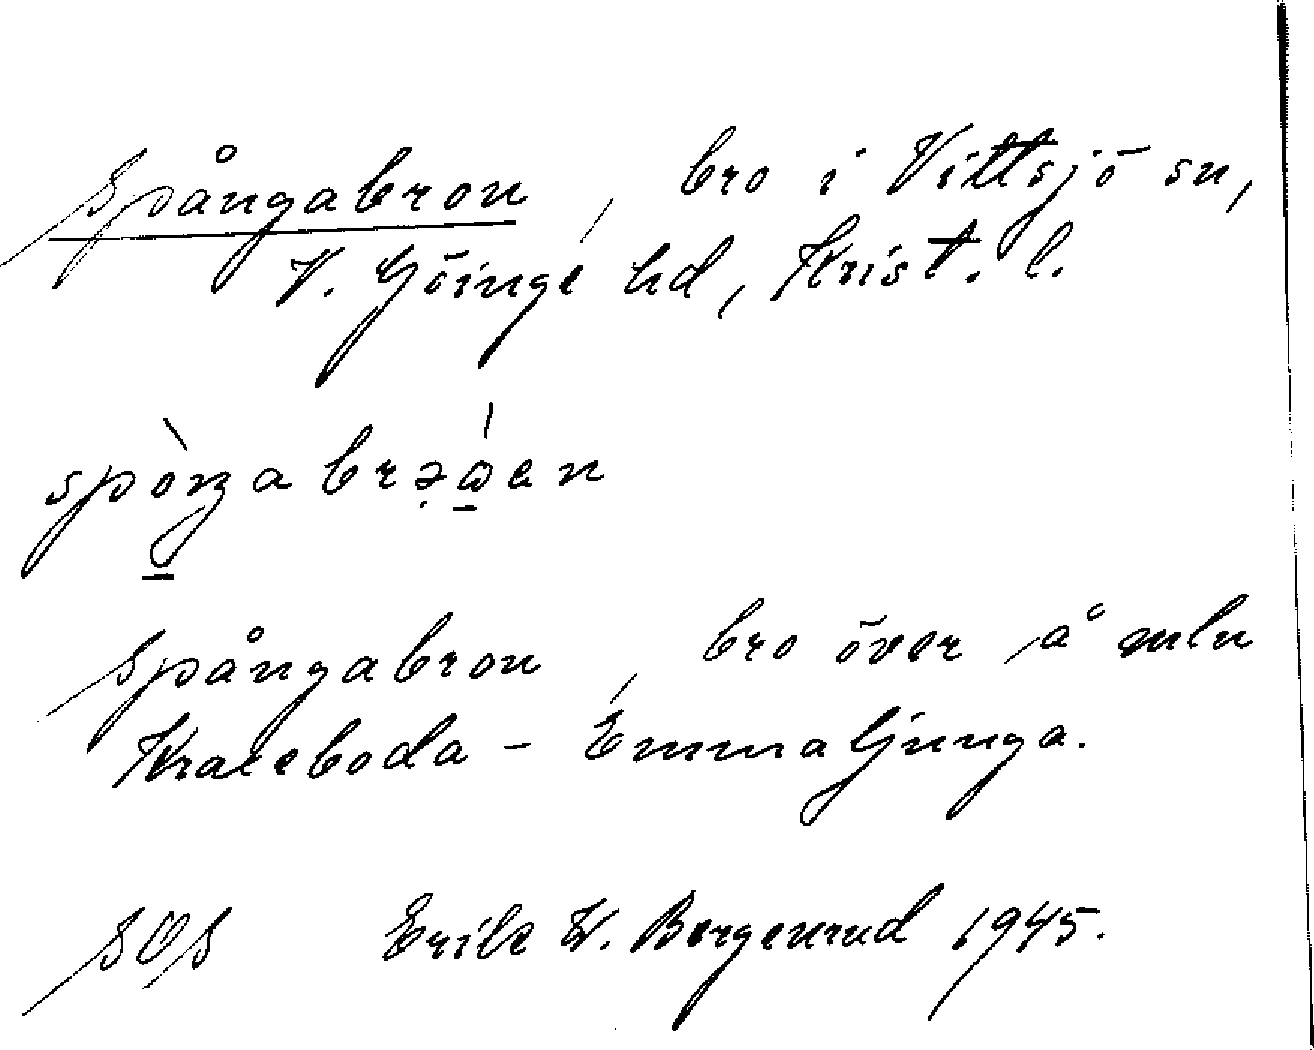 Spångabron, bro i Vittsjö sn,
V. Göinge hd, Krist. l.
Spångabron, bro över å mln
Kraeboda - Emmaljunga.
SOS Erik W. Bergenrud 1945.